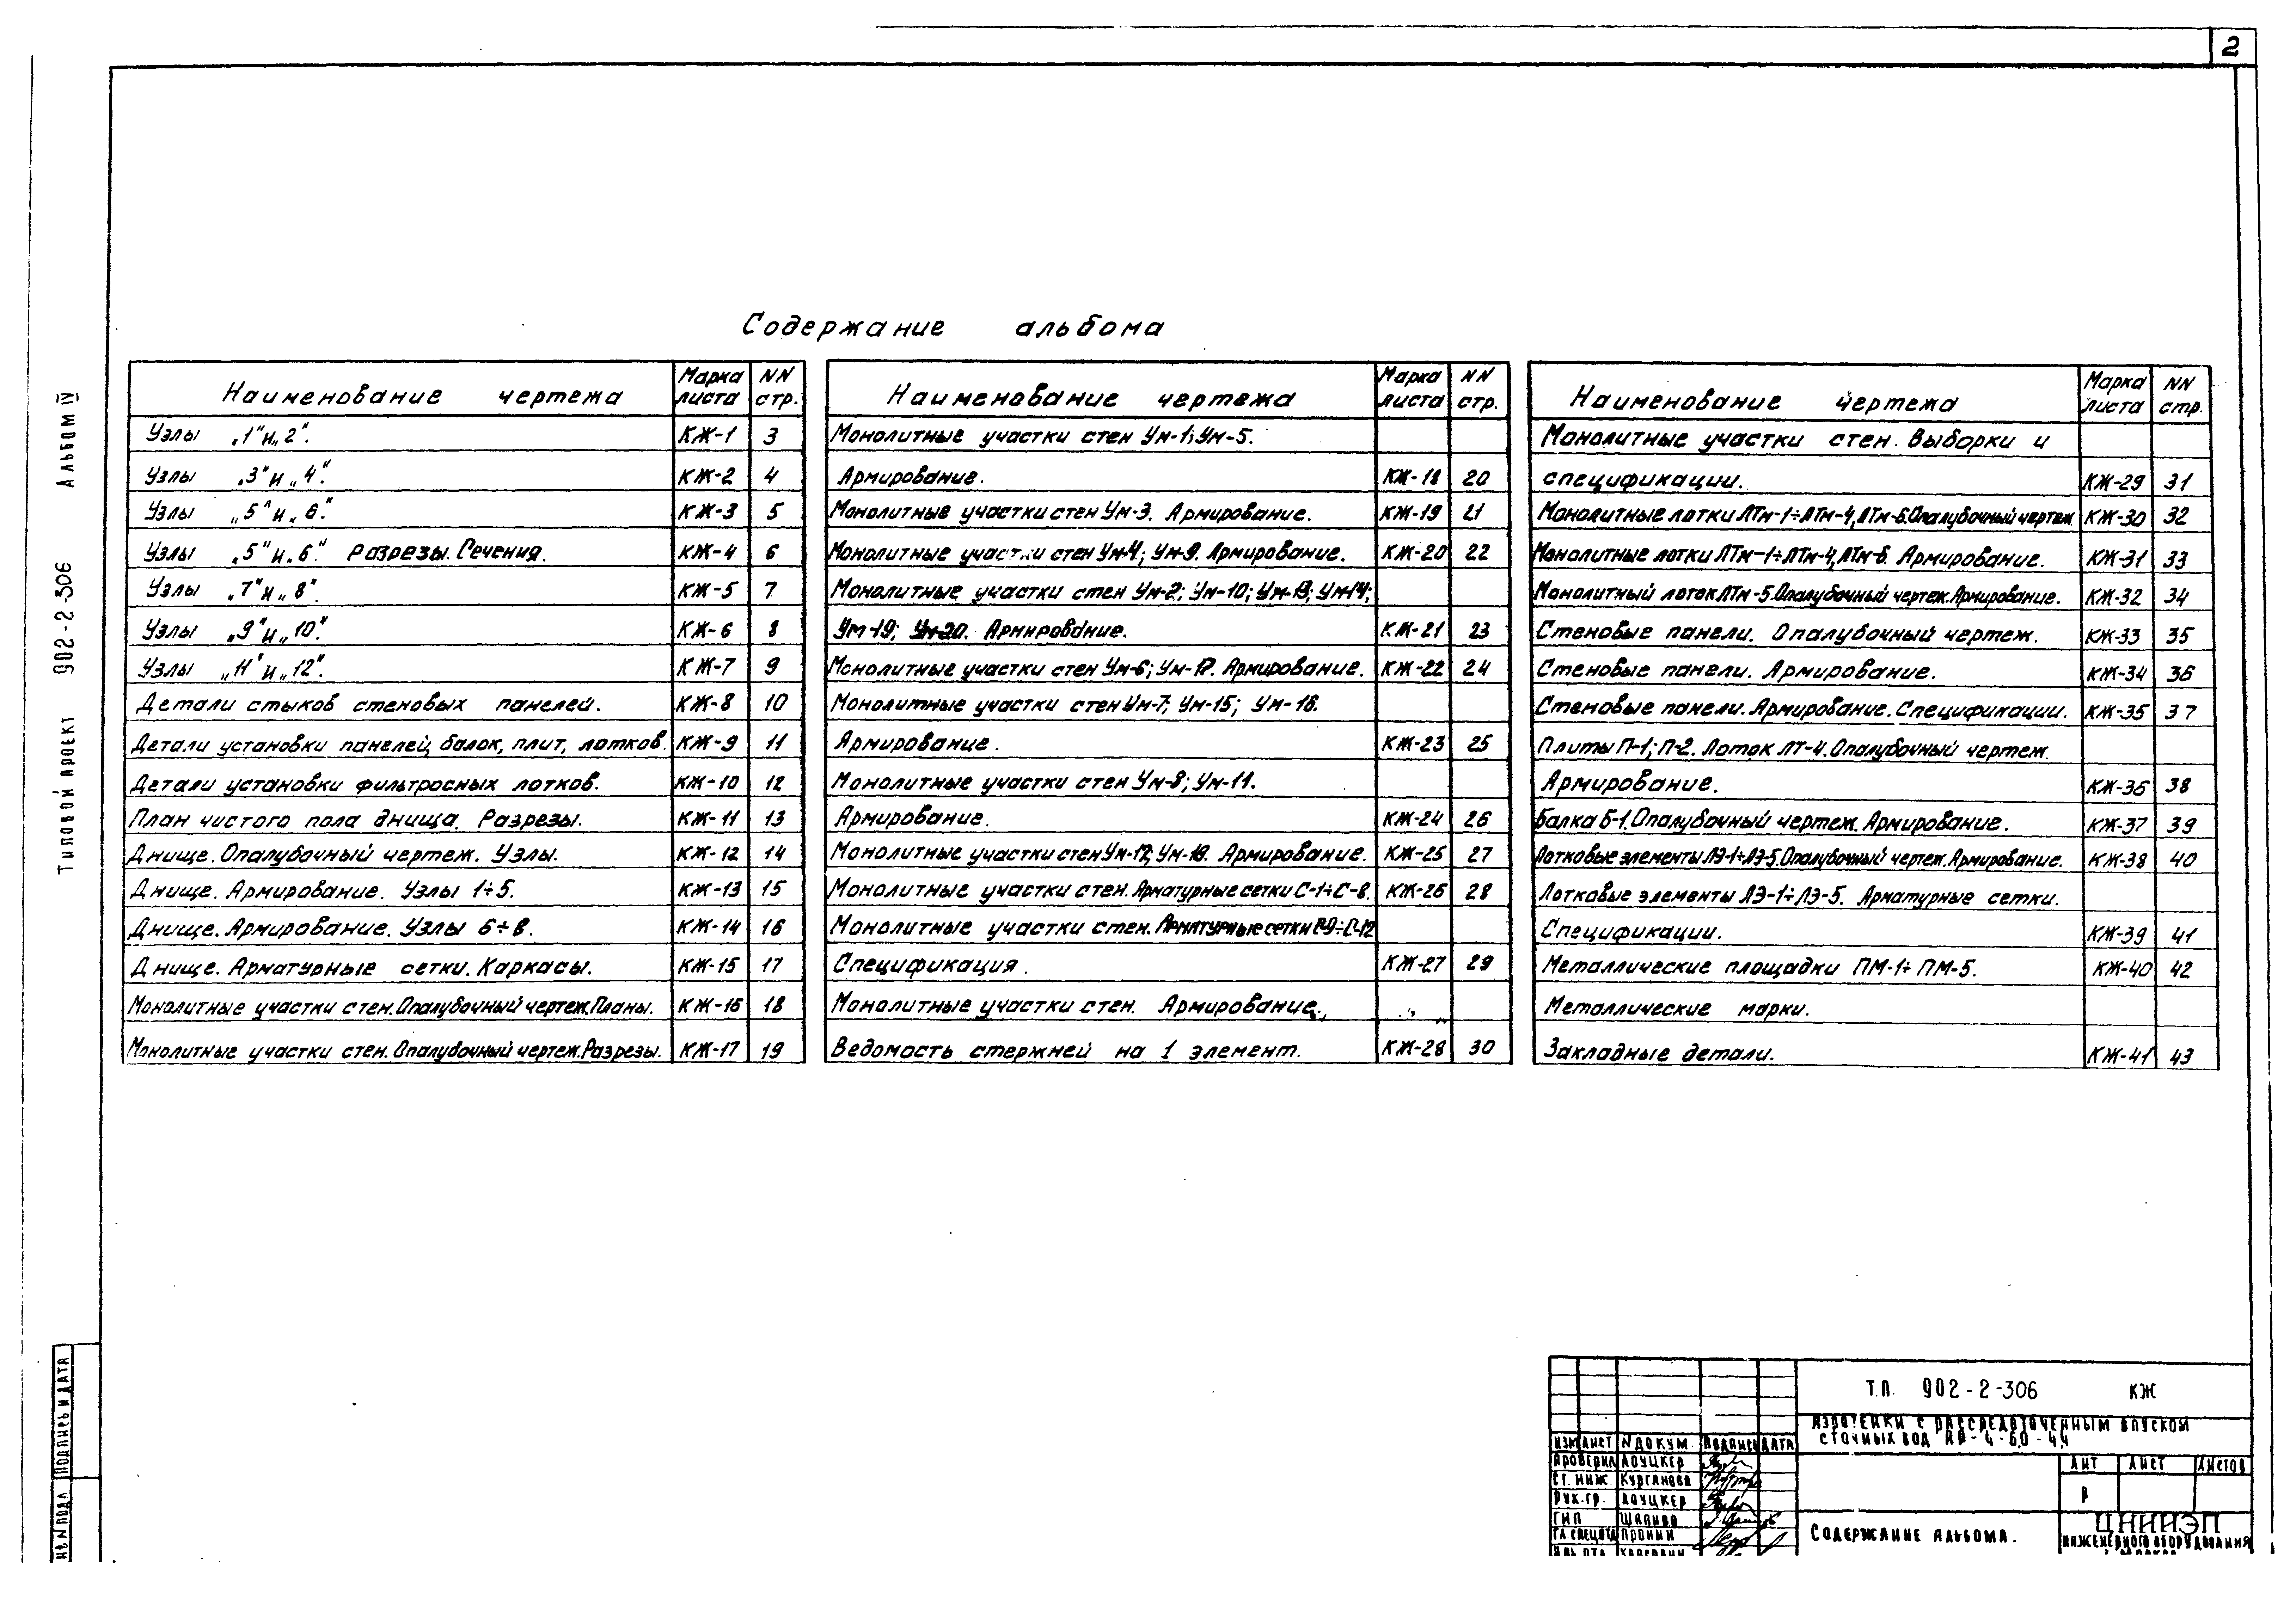 2
Содержание альбома
Наименование чертежа Марка листа NN стр.
Узлы „1" и „2". КЖ-1 3
Узлы „3" и „4". КЖ-2 4
Узлы „5" и „6". КЖ-3 5
Узлы „5" и „6". Разрезы. Сечения. КЖ-4 6
Узлы „7" и „8". КЖ-5 7
Узлы „9" и „10". КЖ-6 8
Узлы „11" и „12". КЖ-7 9
Детали стыков стеновых панелей. КЖ-8 10
Детали установки панелей, балок, плит, лотков. КЖ-9 11
Детали установки фильтросных лотков. КЖ-10 12
План чистого пола днища. Разрезы. КЖ-11 13
Днище. Опалубочный чертеж. Узлы. КЖ-12 14
Днище. Армирование. Узлы 1÷5. КЖ-13 15
Днище. Армирование. Узлы 6÷8. КЖ-14 16
Днище. Арматурные сетки. Каркасы. КЖ-15 17
Монолитные участки стен. Опалубочный чертеж. Планы. КЖ-16 18
Монолитные участки стен. Опалубочный чертеж. Разрезы. КЖ-17 19
Наименование чертежа Марка листа NN стр.
Монолитные участки стен Ум-1; Ум-5.
Армирование. КЖ-18 20
Монолитные участки стен Ум-3. Армирование. КЖ-19 21
Монолитные участки стен Ум-4; Ум-9. Армирование. КЖ-20 22
Монолитные участки стен Ум-2; Ум-10; Ум-13; Ум-14;
Ум-19; Ум-20. Армирование. КЖ-21 23
Монолитные участки стен Ум-6; Ум-12. Армирование. КЖ-22 24
Монолитные участки стен Ум-7; Ум-15; Ум-16.
Армирование. КЖ-23 25
Монолитные участки стен Ум-8; Ум-11.
Армирование. КЖ-24 26
Монолитные участки стен Ум-17; Ум-18. Армирование. КЖ-25 27
Монолитные участки стен. Арматурные сетки С-1÷С-8. КЖ-26 28
Монолитные участки стен. Арматурные сетки С-9÷С-12
Спецификация. КЖ-27 29
Монолитные участки стен. Армирование.
Ведомость стержней на 1 элемент. КЖ-28 30
Наименование чертежа Марка листа NN стр.
Монолитные участки стен. Выборки и
спецификации. КЖ-29 31
Монолитные лотки ЛТм-1÷ЛТм-4, ЛТм-6. Опалубочный чертеж КЖ-30 32
Монолитные лотки ЛТм-1÷ЛТм-4, ЛТм-6. Армирование. КЖ-31 33
Монолитный лоток ЛТм-5. Опалубочный чертеж. Армирование. КЖ-32 34
Стеновые панели. Опалубочный чертеж. КЖ-33 35
Стеновые панели. Армирование. КЖ-34 36
Стеновые панели. Армирование. Спецификации. КЖ-35 37
Плиты П-1; П-2. Лоток ЛТ-4. Опалубочный чертеж.
Армирование. КЖ-36 38
Балка Б-1. Опалубочный чертеж. Армирование. КЖ-37 39
Лотковые элементы ЛЭ-1÷ЛЭ-5. Опалубочный чертеж. Армирование. КЖ-38 40
Лотковые элементы ЛЭ-1÷ЛЭ-5. Арматурные сетки.
Спецификации. КЖ-39 41
Металлические площадки ПМ-1÷ПМ-5. КЖ-40 42
Металлические марки.
Закладные детали. КЖ-41 43
Типовой проект 902-2-306 Альбом IV
Подпись и дата
Т.П. 902-2-306 КЖ
Аэротенки с рассредоточенным впуском
сточных вод
Изм Лист N докум. Подпись Дата
Проверил Лоуцкер
Ст. инж. Курганова
Рук. гр. Лоуцкер
ГИП Шапиро
Гл. спец. Пронин
Лит Лист Листов
Р
Содержание альбома.
ЦНИИЭП
инженерного оборудования